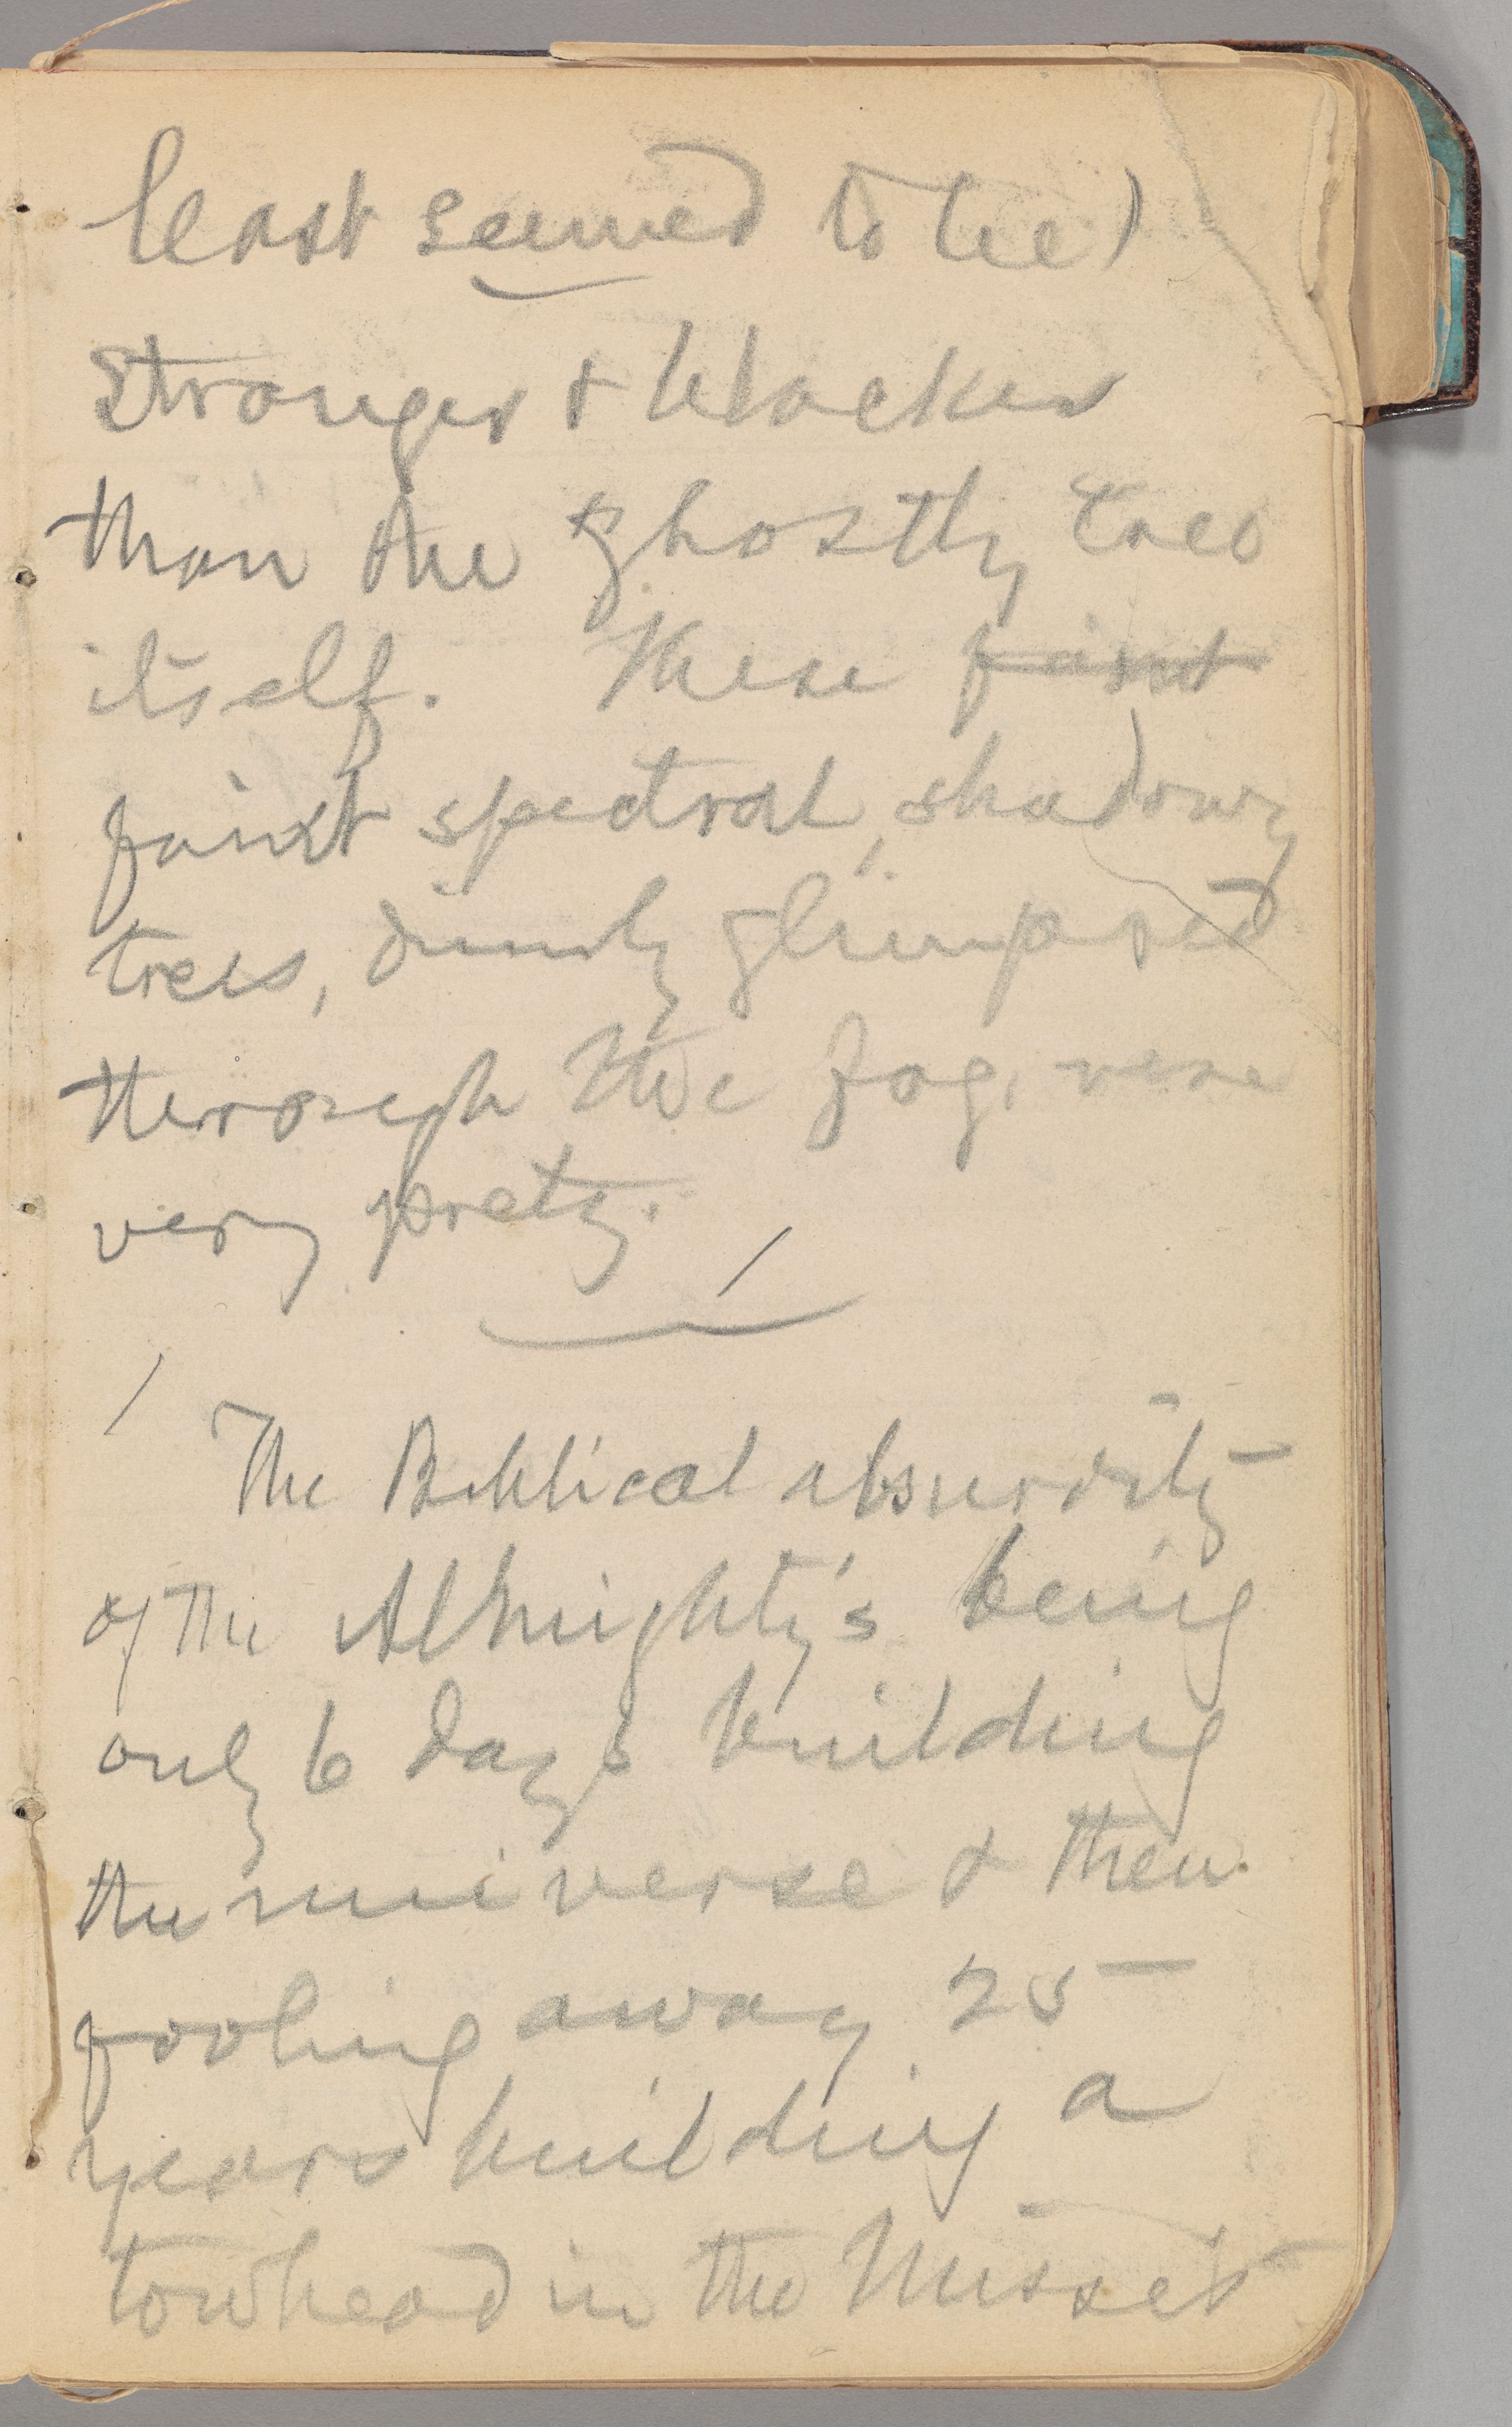 least seemed to be)
stronger & blacker
than the ghostly tree
itself. These faint
faint spectral, shadowy
trees, dimly glimpsed
through the fog, were
very pretty.
The Biblical absurdity
of the Almighty's being
only 6 days building
the universe & then
fooling away 25
years building a
towhead in the Missis